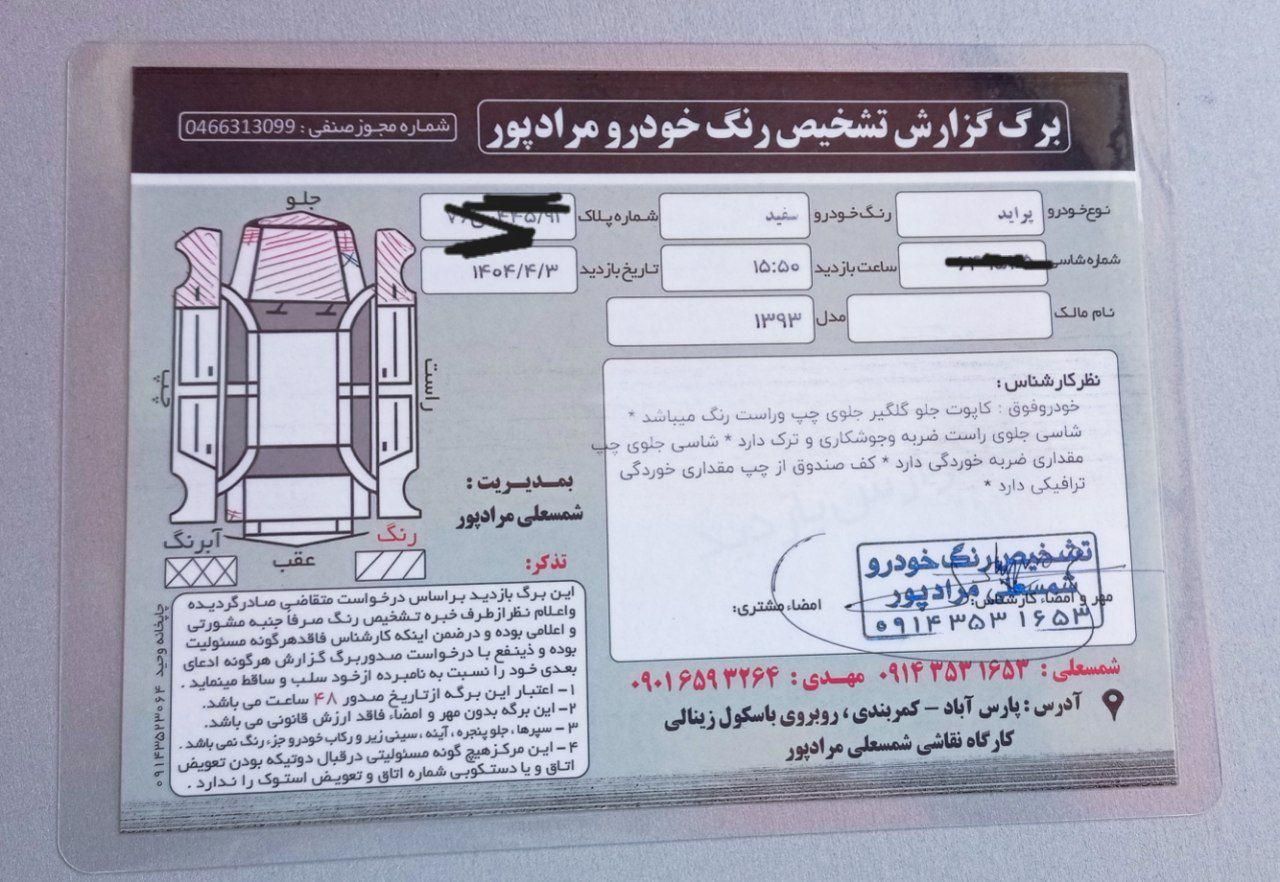 برگ گزارش تشخیص رنگ خودرو مرادپور
شماره مجوز صنفی : 0466313099
نوع خودرو پراید
رنگ خودرو سفید
شماره پلاک
شماره شاسی
ساعت بازدید ۱۵:۵۰
تاریخ بازدید ۱۴۰۴/۴/۳
نام مالک
مدل ۱۳۹۳
جلو
راست
چپ
عقب
رنگ
آبرنگ
نظر کارشناس :
خودروفوق : کاپوت جلو گلگیر جلوی چپ وراست رنگ میباشد *
شاسی جلوی راست ضربه وجوشکاری و ترک دارد * شاسی جلوی چپ
مقداری ضربه خوردگی دارد * کف صندوق از چپ مقداری خوردگی
ترافیکی دارد *
بمدیریت :
شمسعلی مرادپور
تشخیص رنگ خودرو
شمسعلی مرادپور
۰۹۱۴ ۳۵۳ ۱۶۵۳
مهر و امضاء کارشناس:
امضاء مشتری:
تذکر:
این برگ بازدید براساس درخواست متقاضی صادرگردیده
واعلام نظر ازطرف خبره تشخیص رنگ صرفاً جنبه مشورتی
و اعلامی بوده و درضمن اینکه کارشناس فاقدهرگونه مسئولیت
بوده و ذینفع با درخواست صدوربرگ گزارش هرگونه ادعای
بعدی خود را نسبت به نامبرده ازخود سلب و ساقط مینماید .
۱- اعتبار این برگه ازتاریخ صدور ۴۸ ساعت می باشد.
۲- این برگه بدون مهر و امضاء، فاقد ارزش قانونی می باشد.
۳ - سپرها ، جلو پنجره ، آینه ، سینی زیر و رکاب خودرو جزء رنگ نمی باشد .
۴- این مرکزهیچ گونه مسئولیتی درقبال دوتیکه بودن تعویض
اتاق و یا دستکوبی شماره اتاق و تعویض استوک را ندارد .
شمسعلی : ۰۹۱۴ ۳۵۳ ۱۶۵۳ مهدی : ۰۹۰۱ ۶۵۹ ۳۲۶۴
آدرس : پارس آباد - کمربندی ، روبروی باسکول زینالی
کارگاه نقاشی شمسعلی مرادپور
چاپخانه وحید ۰۹۱۴۳۵۲۳۰۶۴